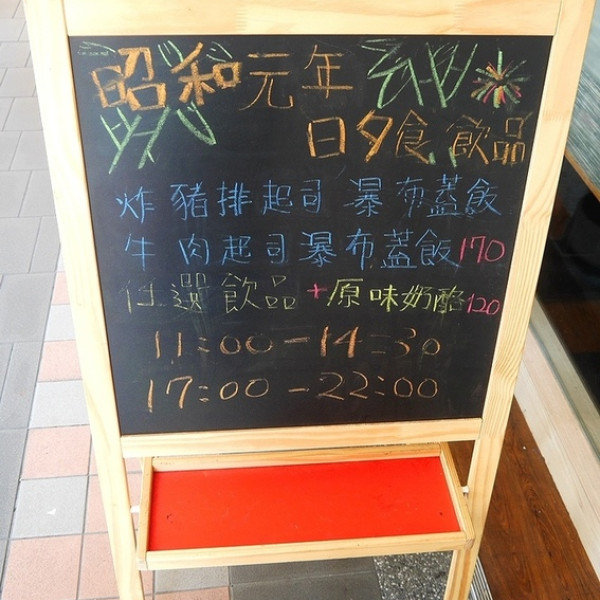 昭和元年
日夕食飲品
炸豬排起司瀑布蓋飯
牛肉起司瀑布蓋飯170
任選飲品+原味奶酪120
11:00-14:30
17:00-22:00